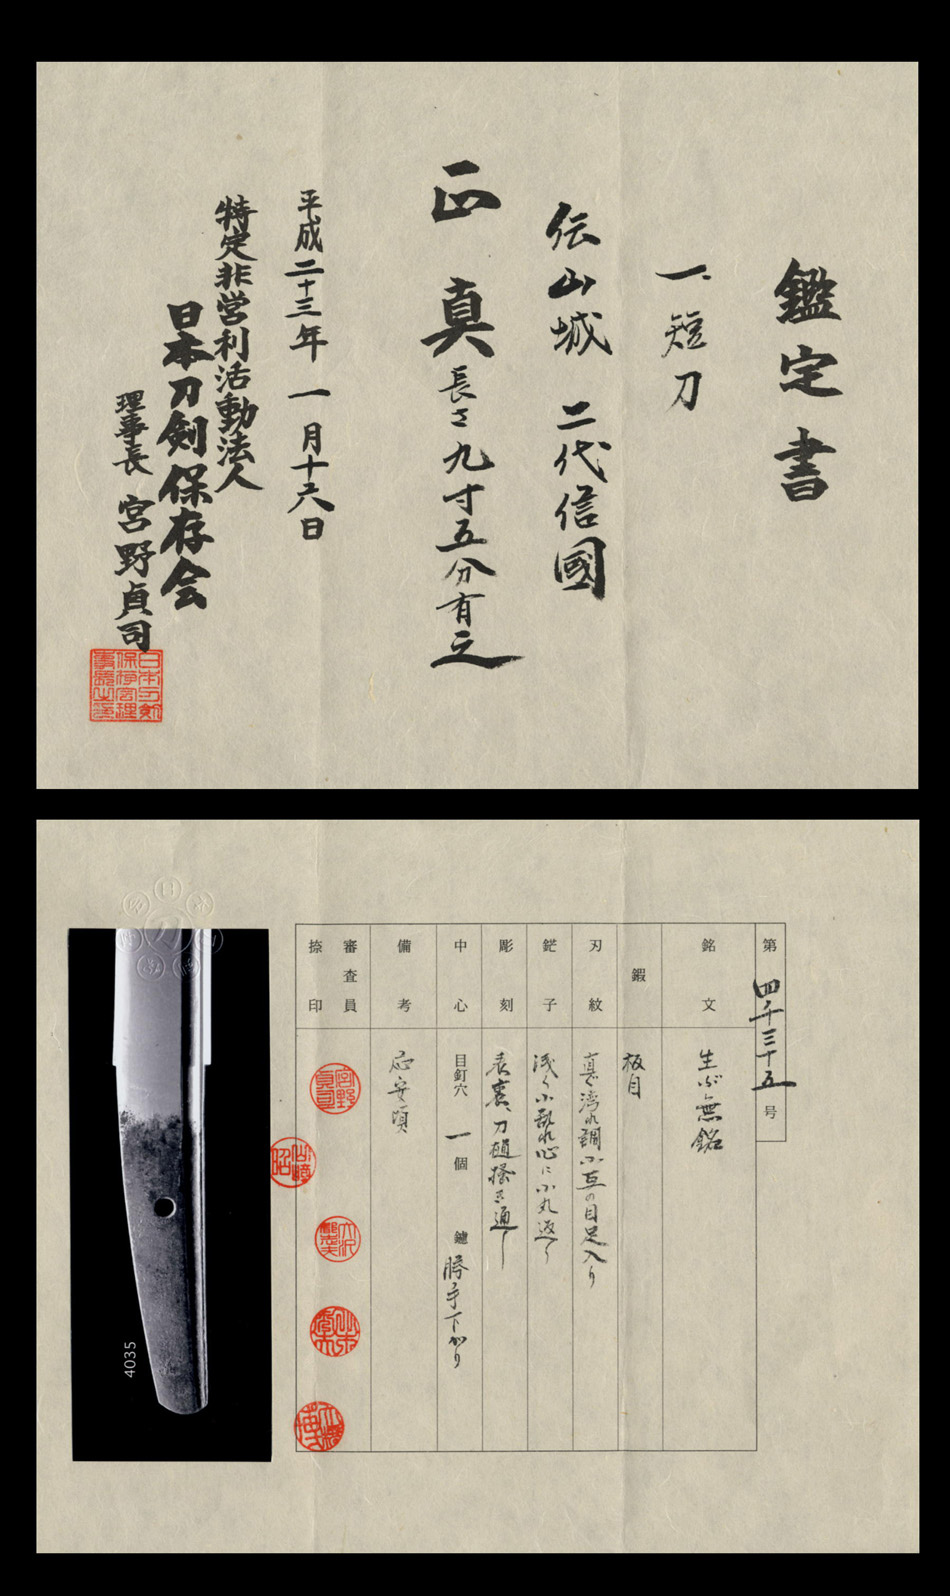 鑑定書
一、短刀
伝山城 二代信國
正真 長さ九寸五分有之
平成二十三年一月十六日
特定非営利活動法人
日本刀剣保存会
理事長 宮野貞司
第四千三十五号
銘文 生ぶ無銘
鍜 板目
刃紋 直ぐ湾れ調小互の目足入り
鋩子 浅く小乱れ心に小丸返る
彫刻 表裏、刀樋掻き通し
中心 目釘穴 一個 鑢 勝手下がり
備考 応安頃
審査員
捺印
4035